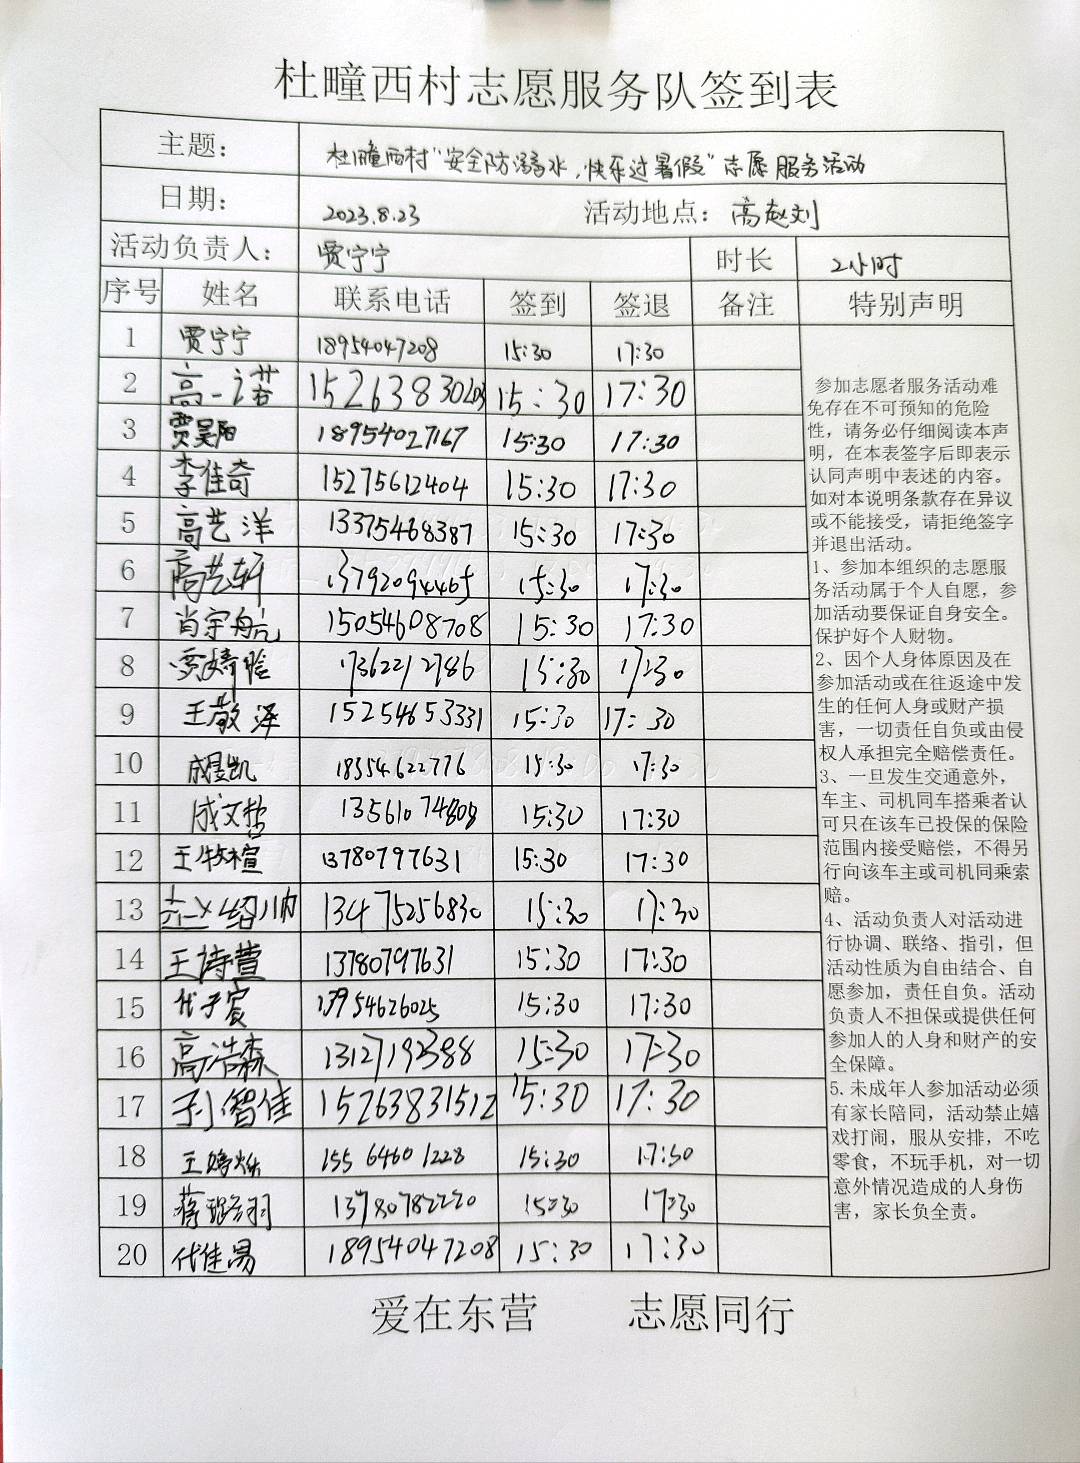 杜疃西村志愿服务队签到表
主题： 杜疃西村“安全防溺水，快乐过暑假”志愿服务活动
日期： 2023.8.23 活动地点：高赵刘
活动负责人： 贾宁宁 时长 2小时
序号 姓名 联系电话 签到 签退 备注 特别声明
1 贾宁宁 18954047208 15:30 17:30
2 高一诺 15263830203 15:30 17:30
3 贾昊阳 18954027167 15:30 17:30
4 李佳奇 15275612404 15:30 17:30
5 高艺洋 13375468387 15:30 17:30
6 高艺轩 13792094465 15:30 17:30
7 肖宇航 15054608708 15:30 17:30
8 17362212786 15:30 17:30
9 王敬泽 15254653331 15:30 17:30
10 成昱凯 18354622776 15:30 17:30
11 成文哲 13561074808 15:30 17:30
12 王牧楦 13780797631 15:30 17:30
13 13475256830 15:30 17:30
14 王诗萱 13780797631 15:30 17:30
15 代子宸 13954626025 15:30 17:30
16 高浩森 13127192388 15:30 17:30
17 刘智佳 15263831512 15:30 17:30
18 15564601228 15:30 17:30
19 13780782220 15:30 17:30
20 代佳易 18954047208 15:30 17:30
参加志愿者服务活动难
免存在不可预知的危险
性，请务必仔细阅读本声
明，在本表签字后即表示
认同声明中表述的内容。
如对本说明条款存在异议
或不能接受，请拒绝签字
并退出活动。
1、参加本组织的志愿服
务活动属于个人自愿，参
加活动要保证自身安全。
保护好个人财物。
2、因个人身体原因及在
参加活动或在往返途中发
生的任何人身或财产损
害，一切责任自负或由侵
权人承担完全赔偿责任。
3、一旦发生交通意外，
车主、司机同车搭乘者认
可只在该车已投保的保险
范围内接受赔偿，不得另
行向该车主或司机同乘索
赔。
4、活动负责人对活动进
行协调、联络、指引，但
活动性质为自由结合、自
愿参加，责任自负。活动
负责人不担保或提供任何
参加人的人身和财产的安
全保障。
5.未成年人参加活动必须
有家长陪同，活动禁止嬉
戏打闹，服从安排，不吃
零食，不玩手机，对一切
意外情况造成的人身伤
害，家长负全责。
爱在东营 志愿同行